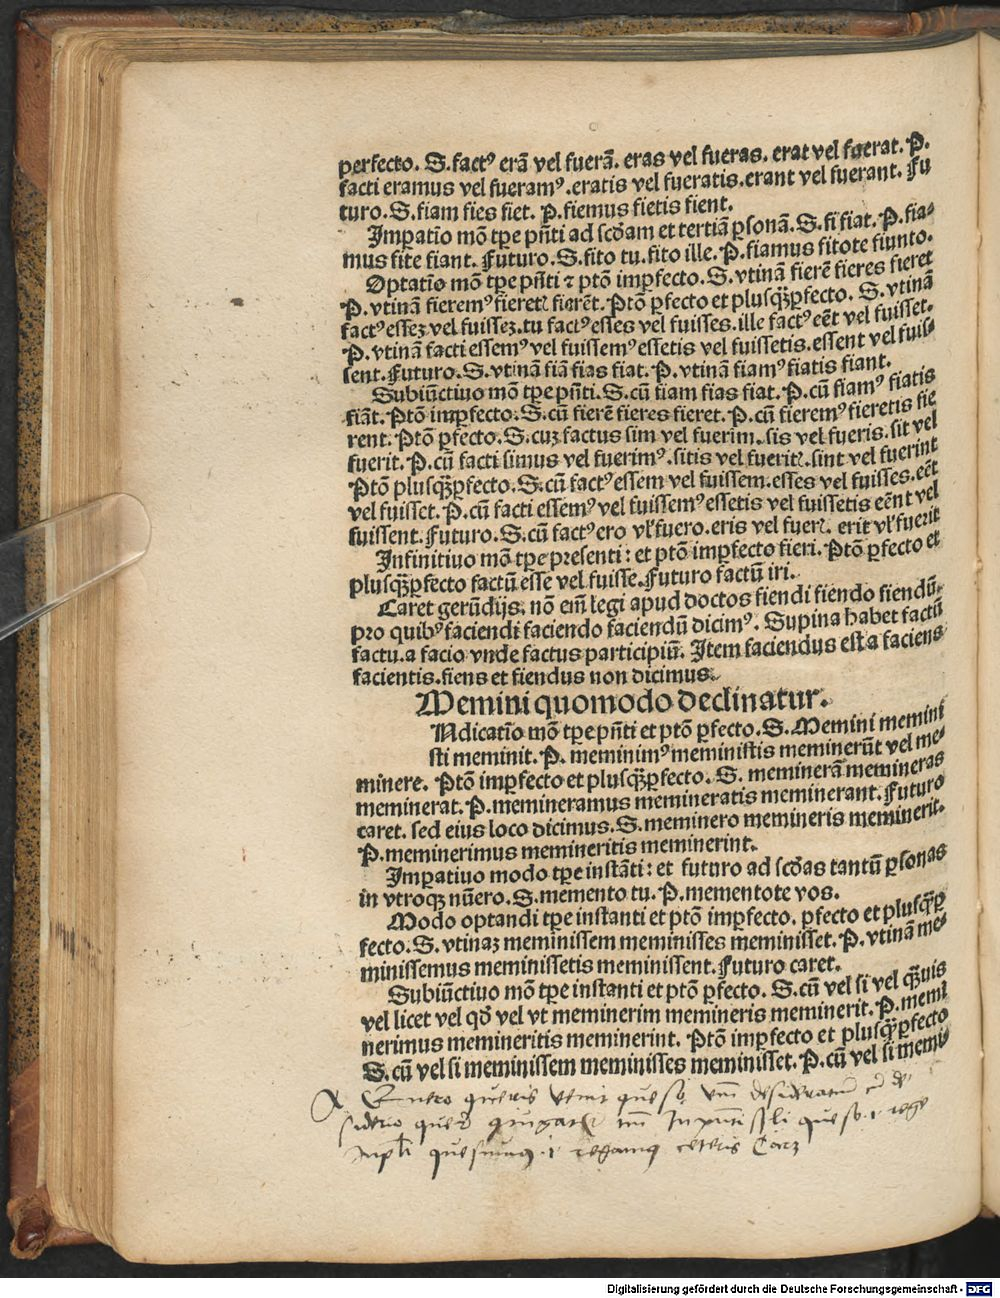 perfecto. S. fact⁹ erã vel fuerã. eras vel fueras. erat vel fuerat. P.
facti eramus vel fueram⁹. eratis vel fueratis. erant vel fuerant. Fu
turo. S. fiam fies fiet. P. fiemus fietis fient.
Impatiõ mõ tpe pñti ad scđam et tertiã psonã. S. fi fiat. P. fia⸗
mus fite fiant. Futuro. S. fito tu. fito ille. P. fiamus fitote fiunto.
Optatiõ mõ tpe pñti ⁊ ptõ impfecto. S. vtinã fierẽ fieres fieret
P. vtinã fierem⁹ fieretꝭ fierẽt. Ptõ pfecto et plusꝙ̃pfecto. S. vtinã
fact⁹ essez vel fuissez. tu fact⁹ esses vel fuisses. ille fact⁹ eẽt vel fuisset.
P. vtinã facti essem⁹ vel fuissem⁹ essetis vel fuissetis. essent vel fuis⸗
sent. Futuro. S. vtinã fiã fias fiat. P. vtinã fiam⁹ fiatis fiant.
Subiũctiuo mõ tpe pñti. S. cũ fiam fias fiat. P. cũ fiam⁹ fiatis
fiãt. Ptõ impfecto. S. cũ fierẽ fieres fieret. P. cũ fierem⁹ fieretis fie
rent. Ptõ pfecto. S. cuz factus sim vel fuerim. sis vel fueris. sit vel
fuerit. P. cũ facti simus vel fuerim⁹. sitis vel fueritꝭ. sint vel fuerint
Ptõ plusꝙ̃pfecto. S. cũ fact⁹ essem vel fuissem. esses vel fuisses. eẽt
vel fuisset. P. cũ facti essem⁹ vel fuissem⁹ essetis vel fuissetis eẽnt vel
fuissent. Futuro. S. cũ fact⁹ ero vł fuero. eris vel fuerꝭ. erit vł fuerit
Infinitiuo mõ tpe presenti: et ptõ impfecto fieri. Ptõ pfecto et
plusꝙ̃pfecto factũ esse vel fuisse. Futuro factũ iri.
Caret gerũdijs. nõ em̃ legi apud doctos fiendi fiendo fiendũ.
pro quib⁹ faciendi faciendo faciendũ dicim⁹. Supina habet factũ
factu. a facio vnde factus participiũ. Item faciendus est a faciens
facientis. fiens et fiendus non dicimus.
Memini quomodo declinatur.
Ndicatiõ mõ tpe pñti et ptõ pfecto. S. Memini memini
sti meminit. P. meminim⁹ meministis meminerũt vel me⸗
minere. Ptõ impfecto et plusꝙ̃pfecto. S. meminerã memineras
meminerat. P. memineramus memineratis meminerant. Futuro
caret. sed eius loco dicimus. S. meminero memineris meminerit.
P. meminerimus memineritis meminerint.
Impatiuo modo tpe instãti: et futuro ad scđas tantũ psonas
in vtroqꝫ nũero. S. memento tu. P. mementote vos.
Modo optandi tpe instanti et ptõ impfecto. pfecto et plusꝙ̃p
fecto. S. vtinaz meminissem meminisses meminisset. P. vtinã me⸗
minissemus meminissetis meminissent. Futuro caret.
Subiũctiuo mõ tpe instanti et ptõ pfecto. S. cũ vel si vel ꝙ̃uis
vel licet vel qđ vel vt meminerim memineris meminerit. P. memi
nerimus memineritis meminerint. Ptõ impfecto et plusꝙ̃pfecto
S. cũ vel si meminissem meminisses meminisset. P. cũ vel si memi⸗
queris
siderio
ceteris
Digitalisierung gefördert durch die Deutsche Forschungsgemeinschaft - DFG